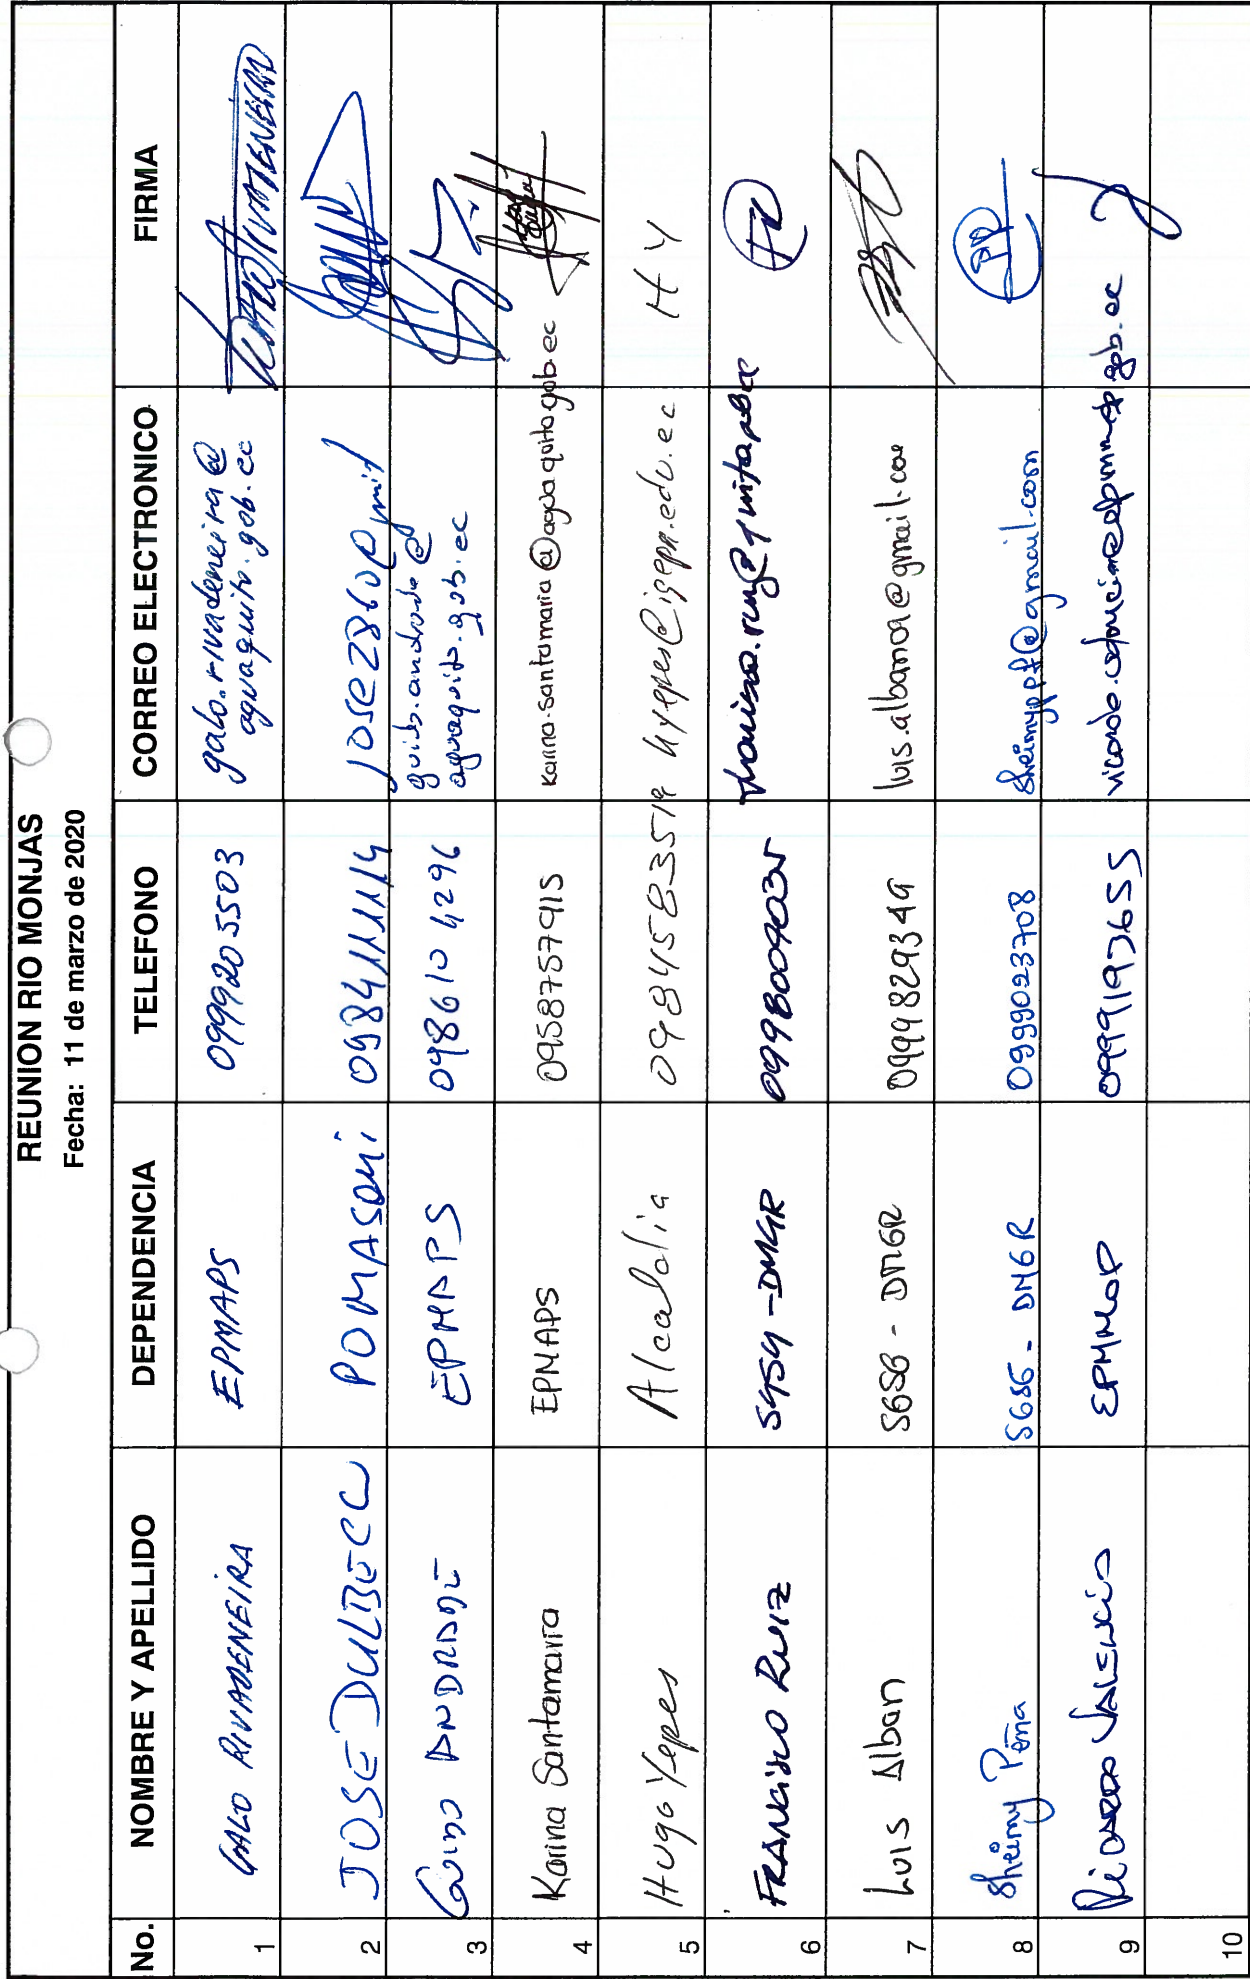 REUNION RIO MONJAS
Fecha: 11 de marzo de 2020
No. NOMBRE Y APELLIDO DEPENDENCIA TELEFONO CORREO ELECTRONICO FIRMA
1 GALO RIVADENEIRA EPMAPS 0999205503 galo.rivadeneira@
aguaquito.gob.ec
2 JOSE DULBECC POMASQUI 0984111114 jose2860@gmil
3 GUIDO ANDRADE EPMAPS 0986104296 guido.andrade@
aguaquito.gob.ec
4 Karina Santamaria EPMAPS 0958757915 karina.santamaria@aguaquito.gob.ec
5 Hugo Yepes Alcaldia 0984583519 hyepes@igepn.edu.ec HY
6 FRANCISCO RUIZ SGSG-DMGR 0998009035 FR
7 Luis Alban SGSG - DMGR 0999829349 luis.albano9@gmail.com
8 Sheimy Peña SGSG - DMGR 0999023708 sheimyppf@gmail.com
9 RICARDO VALENCIA EPMMOP 0999193655
10